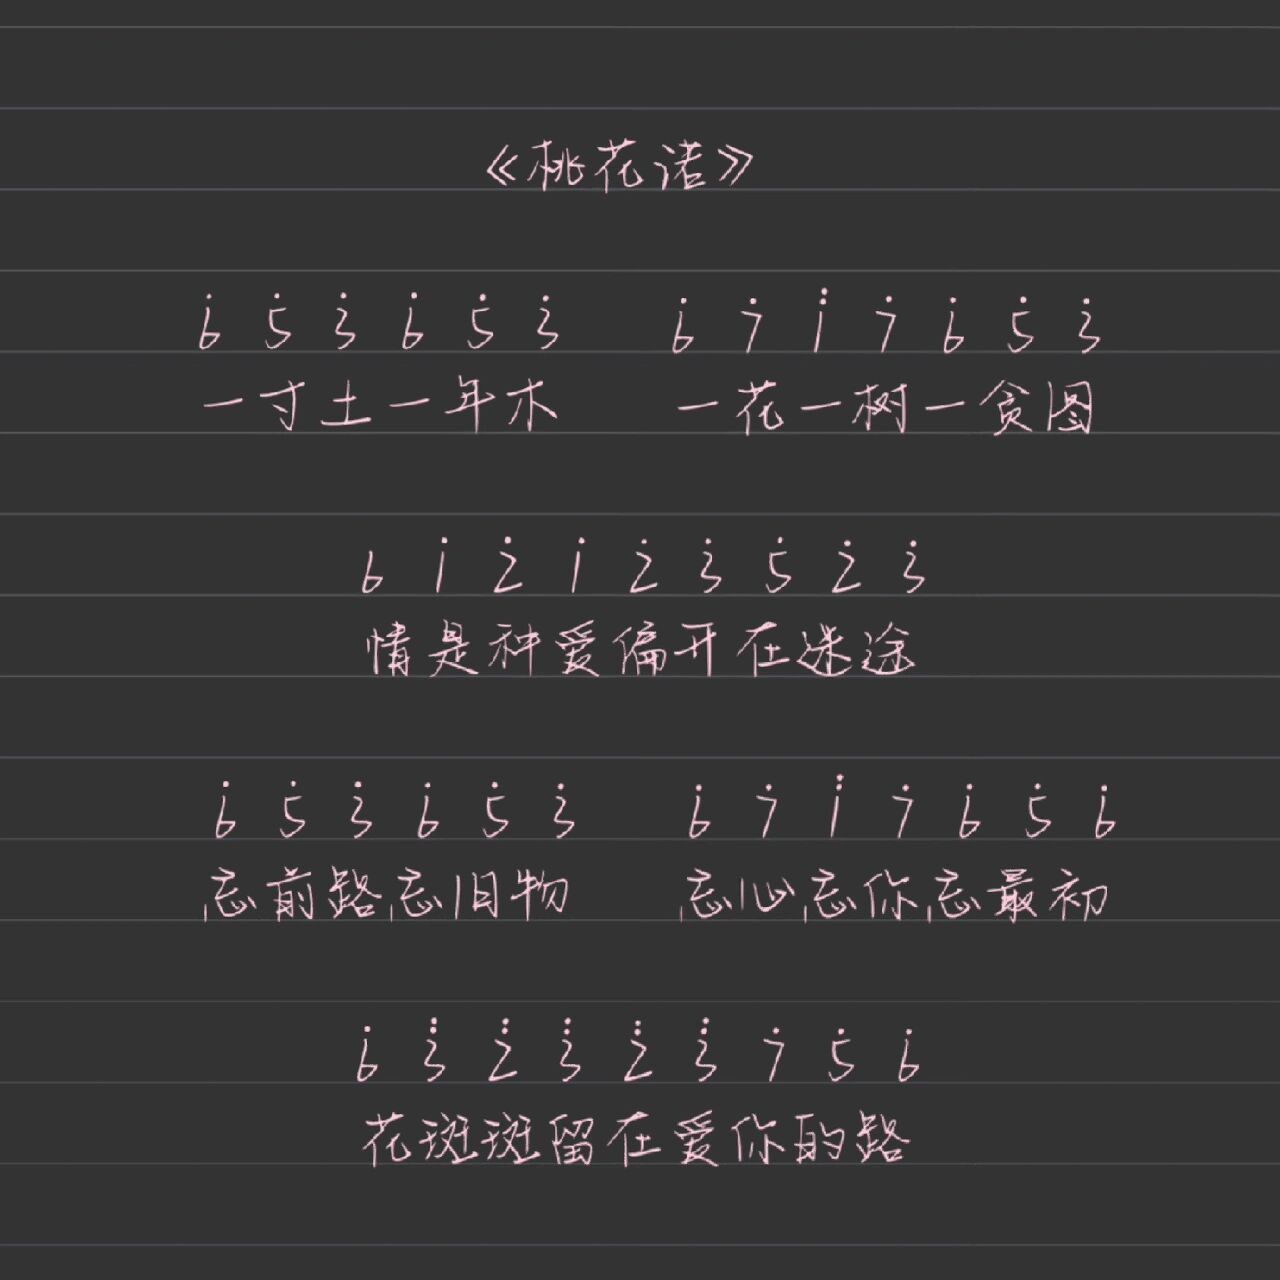 《桃花诺》
6̇ 5̇ 3̇ 6̇ 5̇ 3̇ 6̇ 7̇ 1̈ 7̇ 6̇ 5̇ 3̇
一寸土一年木 一花一树一贪图
6 1̇ 2̇ 1̇ 2̇ 3̇ 5̇ 2̇ 3̇
情是种爱偏开在迷途
6̇ 5̇ 3̇ 6̇ 5̇ 3̇ 6̇ 7̇ 1̈ 7̇ 6̇ 5̇ 6̇
忘前路忘旧物 忘心忘你忘最初
6̇ 3̈ 2̈ 3̈ 2̈ 3̈ 7̇ 5̇ 6̇
花斑斑留在爱你的路